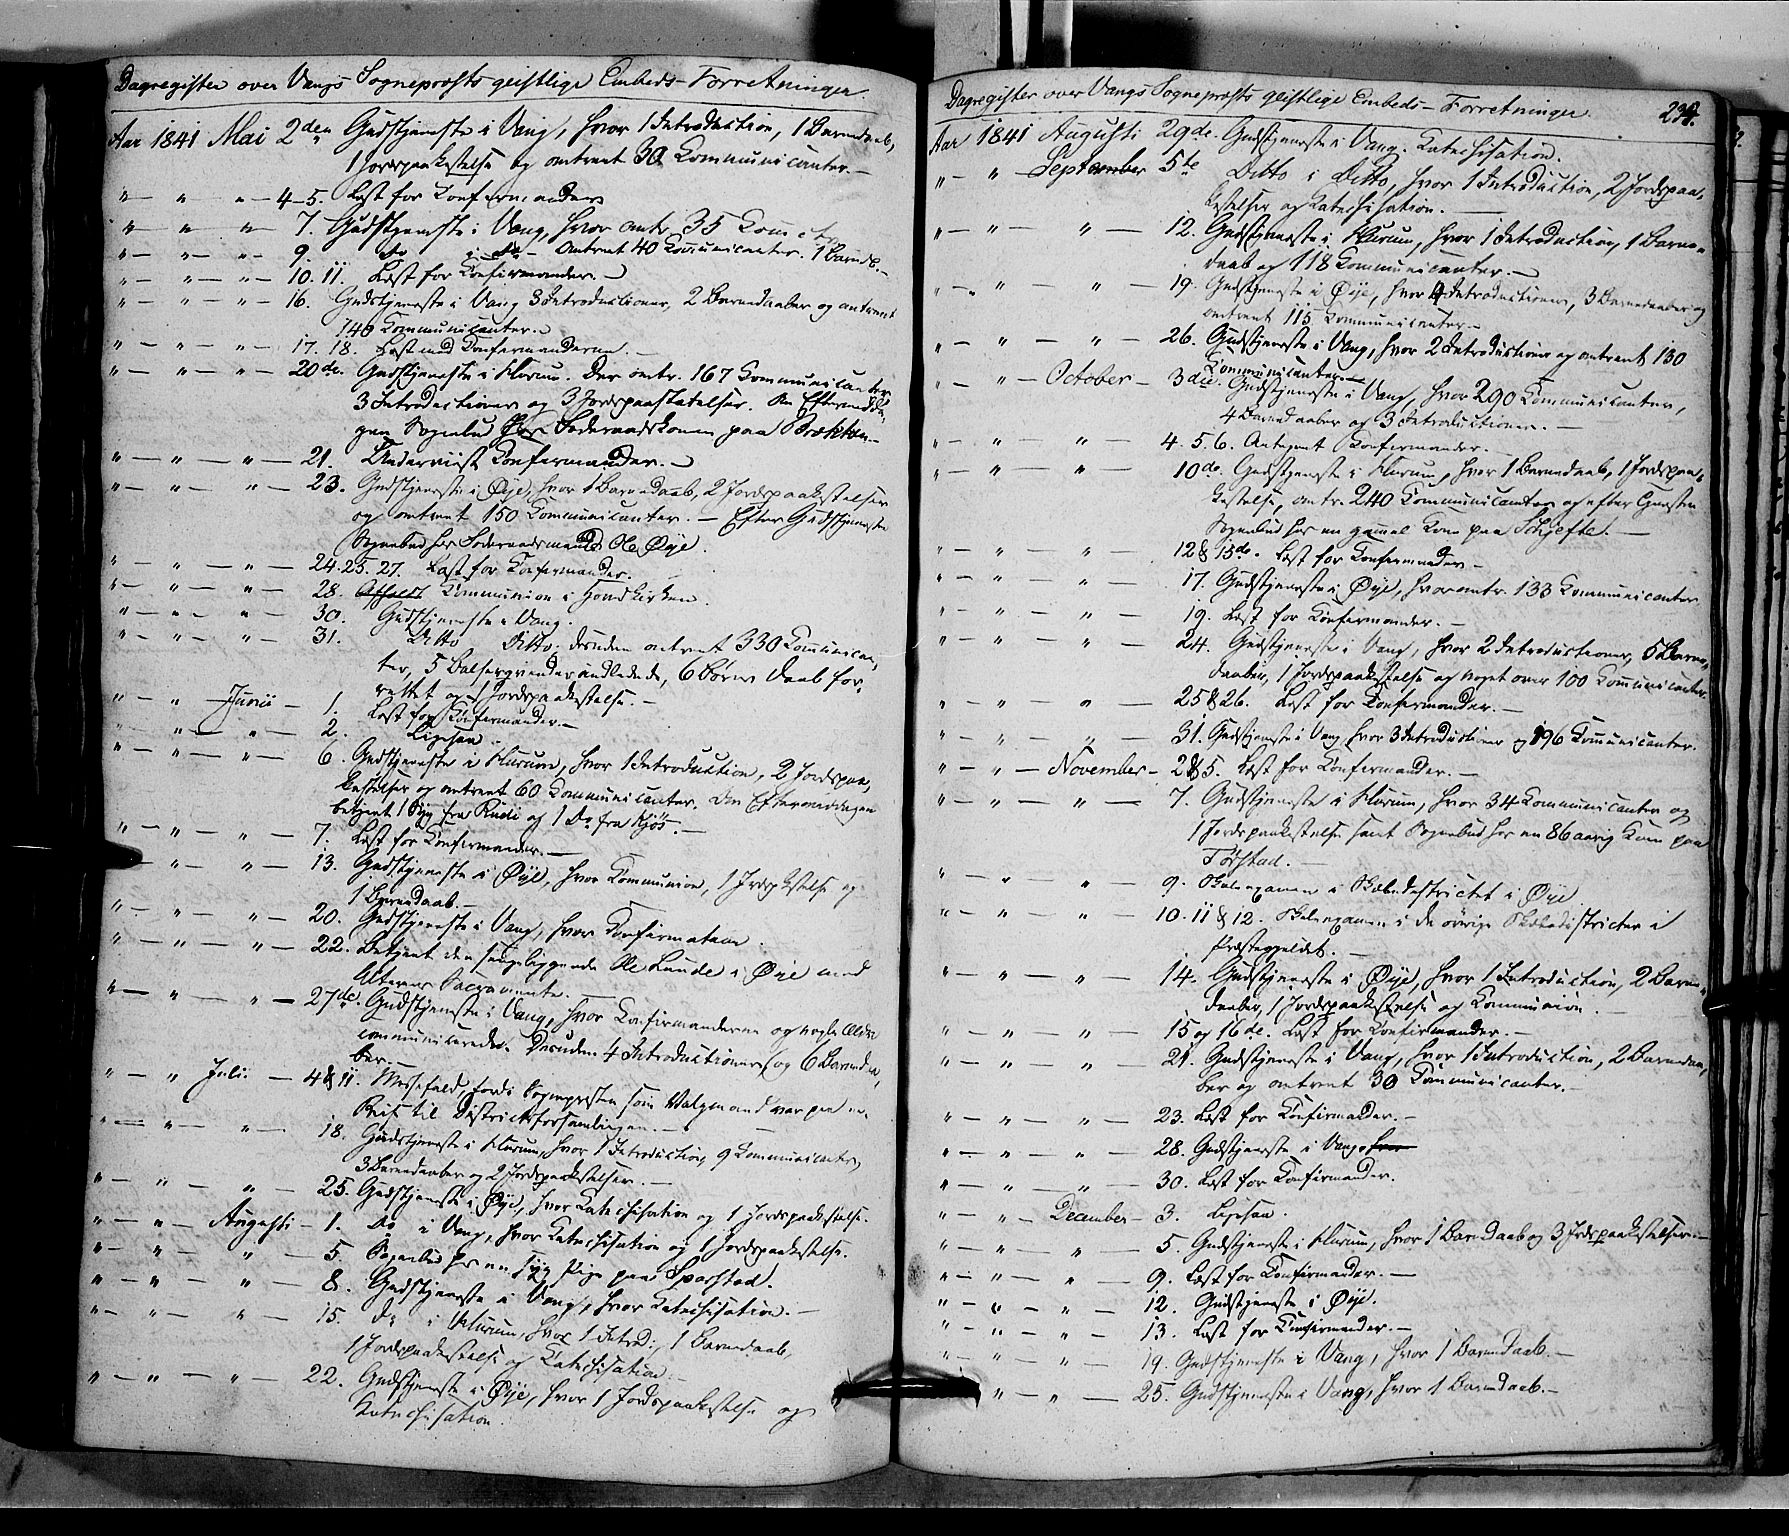 Dagregister over Vangs Sognepræsts geistlige Embeds-Forretninger.
Aar 1841 Mai 2den Gudstjeneste i Vang, hvor 1 Introduction, 1 Barnedaab,
1 Jordspaakastelse og omtrent 30 Kommunicanter. —
" — " " — 4-5. Læst for Konfirmander
" — " — " — 7. Gudstjeneste i Vang, hvor omtr 35 Kom
" — " — " — 9. do i do — omtrent 40 Communicanter. 1 Barned. —
" — " — " — 10. 11. Læst for Confirmander. —
" — " — " — 16. Gudstjeneste i Vang 3 Introductioner, 2 Barnedaaber og omtrent
140 Kommunicanter. —
" — " — " — 17. 18. Læst med Confirmanderne. —
" — " — " — 20de. Gudstjeneste i Hurum. Der omtr. 167 Kommunicanter,
3 Introductioner og 3 Jordspaakastelser. Om Eftermidda-
gen Sognebud hos Foderaadskonen paa Brækken —
" — " — " — 21. Underviist Confirmander. —
" — " — " — 23. Gudstjeneste i Øye, hvor 1 Barnedaab, 2 Jordspaakastelser
og omtrent 150 Communicanter. — Efter Gudstjenesten
Sognebud hos Foderaadsmanden Ole Øye.
" — " — " — 24. 25. 27. Læst for Confirmander.
" — " — " — 28. Afholdt Communion i Hovedkirken.
" — " — " — 30. Gudstjeneste i Vang.
" — " — " — 31. Ditto Ditto; desuden omtrent 330 Communican-
ter, 5 Barselqvinder indledede, 6 Børns Daab for-
rettet og 1 Jordspaakastelse. —
" — " Junii — 1. Læst for Confirmander. —
" — " — " — 2. Ligesaa.
" — " — " — 6. Gudstjeneste i Hurum, hvor 1 Introduction, 2 Jordspaa-
kastelser og omtrent 60 Communicanter. Om Eftermiddagen
betjent 1 Syg fra Rudi og 1 Do fra Kjøs. —
" — " — " — 7. Læst for Confirmander. —
" — " — 13. Gudstjeneste i Øye, hvor Communion, 1 Jordspkastelse og
1 Barnedaab. —
" — " — " — 20. Gudstjeneste i Vang, hvor Confirmation.
" — " — " — 22. Betjent den sengeliggende Ole Lunde i Øye med
Alterens Sacramente. —
" — " — " — 27de. Gudstjeneste i Vang, hvor Confirmanderne og nogle Ældre
communicerede. Desuden 4 Introductioner og 6 Barnedaa-
ber. —
" — " Juli — 4 & 11. Messefald, fordi Sognepresten som Valgmand var paa en
Reise til Districtsforsamlingen. —
" — " — " — 18. Gudstjeneste i Hurum, hvor 1 Introduction, 9 Communicanter,
3 Barnedaaber og 2 Jordspaakastelser. —
" — " — " — 25. Gudstjeneste i Øye, hvor Katechisation og 1 Jordspaakastelse.
" — " — Augusti — 1. Do i Vang, hvor Katechisation og 1 Jordspaakastelse.
" — " — " — 5. Sognebud hos en syg Pige paa Sparstad.
" — " — " — 8. Gudstjeneste i Vang, hvor Katechisation. —
" — " — " — 15. Do i Hurum, hvor 1 Introd:, 1 Barnedaab,
1 Jordspaakastelse og Katechisation. —
" — " — " — 22. Gudstjeneste i Øye, hvor 1 Jordspaakastelse og
Katechisation.
Dagregister over Vangs Sognepræsts geistlige Embeds-Forretninger. 234.
Aar 1841 Augusti 29de. Gudstjeneste i Vang. Katechisation.
" — " — September 5te Ditto i Ditto, hvor 1 Introduction, 2 Jordspaa-
kastelser og Katechisation. —
" — " — " — 12. Gudstjeneste i Hurum, hvor 1 Introduction, 1 Barne-
daab og 118 Communicanter. —
" — " — " — 19. Gudstjeneste i Øye, hvor 4 Introductioner, 3 Barnedaaber og
omtrent 115 Communicanter. —
" — " — " — 26. Gudstjeneste i Vang, hvor 2 Introductioner og omtrent 130
Communicanter. —
" — " — October — 3die. Gudstjeneste i Vang, hvor 290 Communicanter,
4 Barnedaaber og 3 Introductioner. —
" — " — " — 4. 5. 6. Antegnet Confirmander. —
" — " — " — 10de. Gudstjeneste i Hurum, hvor 1 Barnedaab, 1 Jordspaa-
kastelse, omtr. 240 Communicanter og efter Tjenesten
Sognebud hos en gammel Kone paa Skjefte. —
" — " — " — 12 & 15de. Læst for Confirmander —
" — " — " — 17. Gudstjeneste i Øye, hvor omtr. 133 Communicanter
" — " — " — 19. Læst for Confirmander. —
" — " — " — 24. Gudstjeneste i Vang, hvor 2 Introductioner, 5 Barne-
daaber, 1 Jordspaakastelse og noget over 100 Communicanter.
" — " — " — 25 & 26. Læst for Confirmander. —
" — " — " — 31. Gudstjeneste i Vang, hvor 3 Introductioner og 196 Communicanter.
" — " — November — 2 & 5. Læst for Confirmander. —
" — " — " — 7. Gudstjeneste i Hurum, hvor 34 Communicanter og
1 Jordspaakastelse samt Sognebud hos en 86 aarig Kone paa
Førstad. —
" — " — " — 9. Skoleexamen i Skoledistrictet i Øye
" — " — " — 10. 11 & 12. Skoleexamen i de øvrige Skoledistricter i
Præstegjeldet. —
" — " — " — 14. Gudstjeneste i Øye, hvor 1 Introduction, 2 Barne-
daaber, 1 Jordspaakastelse og Communion. —
" — " — " — 15 og 16de. Læst for Confirmander. —
" — " — " — 21. Gudstjeneste i Vang, hvor 1 Introduction, 2 Barnedaa-
ber og omtrent 30 Communicanter. —
" — " — " — 23. Læst for Confirmander. —
" — " — " — 28. Gudstjeneste i Vang hvor
" — " — " — 30. Læst for Confirmander.
" — " — December — 3. Ligesaa.
" — " — " — 5. Gudstjeneste i Hurum, hvor 1 Barnedaab og 3 Jordspaakastelser. —
" — " — " — 9. Læst for Confirmander. —
" — " — " — 12. Gudstjeneste i Øye.
" — " — " — 13. Læst for Confirmander. —
" — " — " — 19. Gudstjeneste i Vang, hvor 1 Barnedaab. —
" — " — 25. Gudstjeneste i Vang, hvor 1 Barnedaab. —